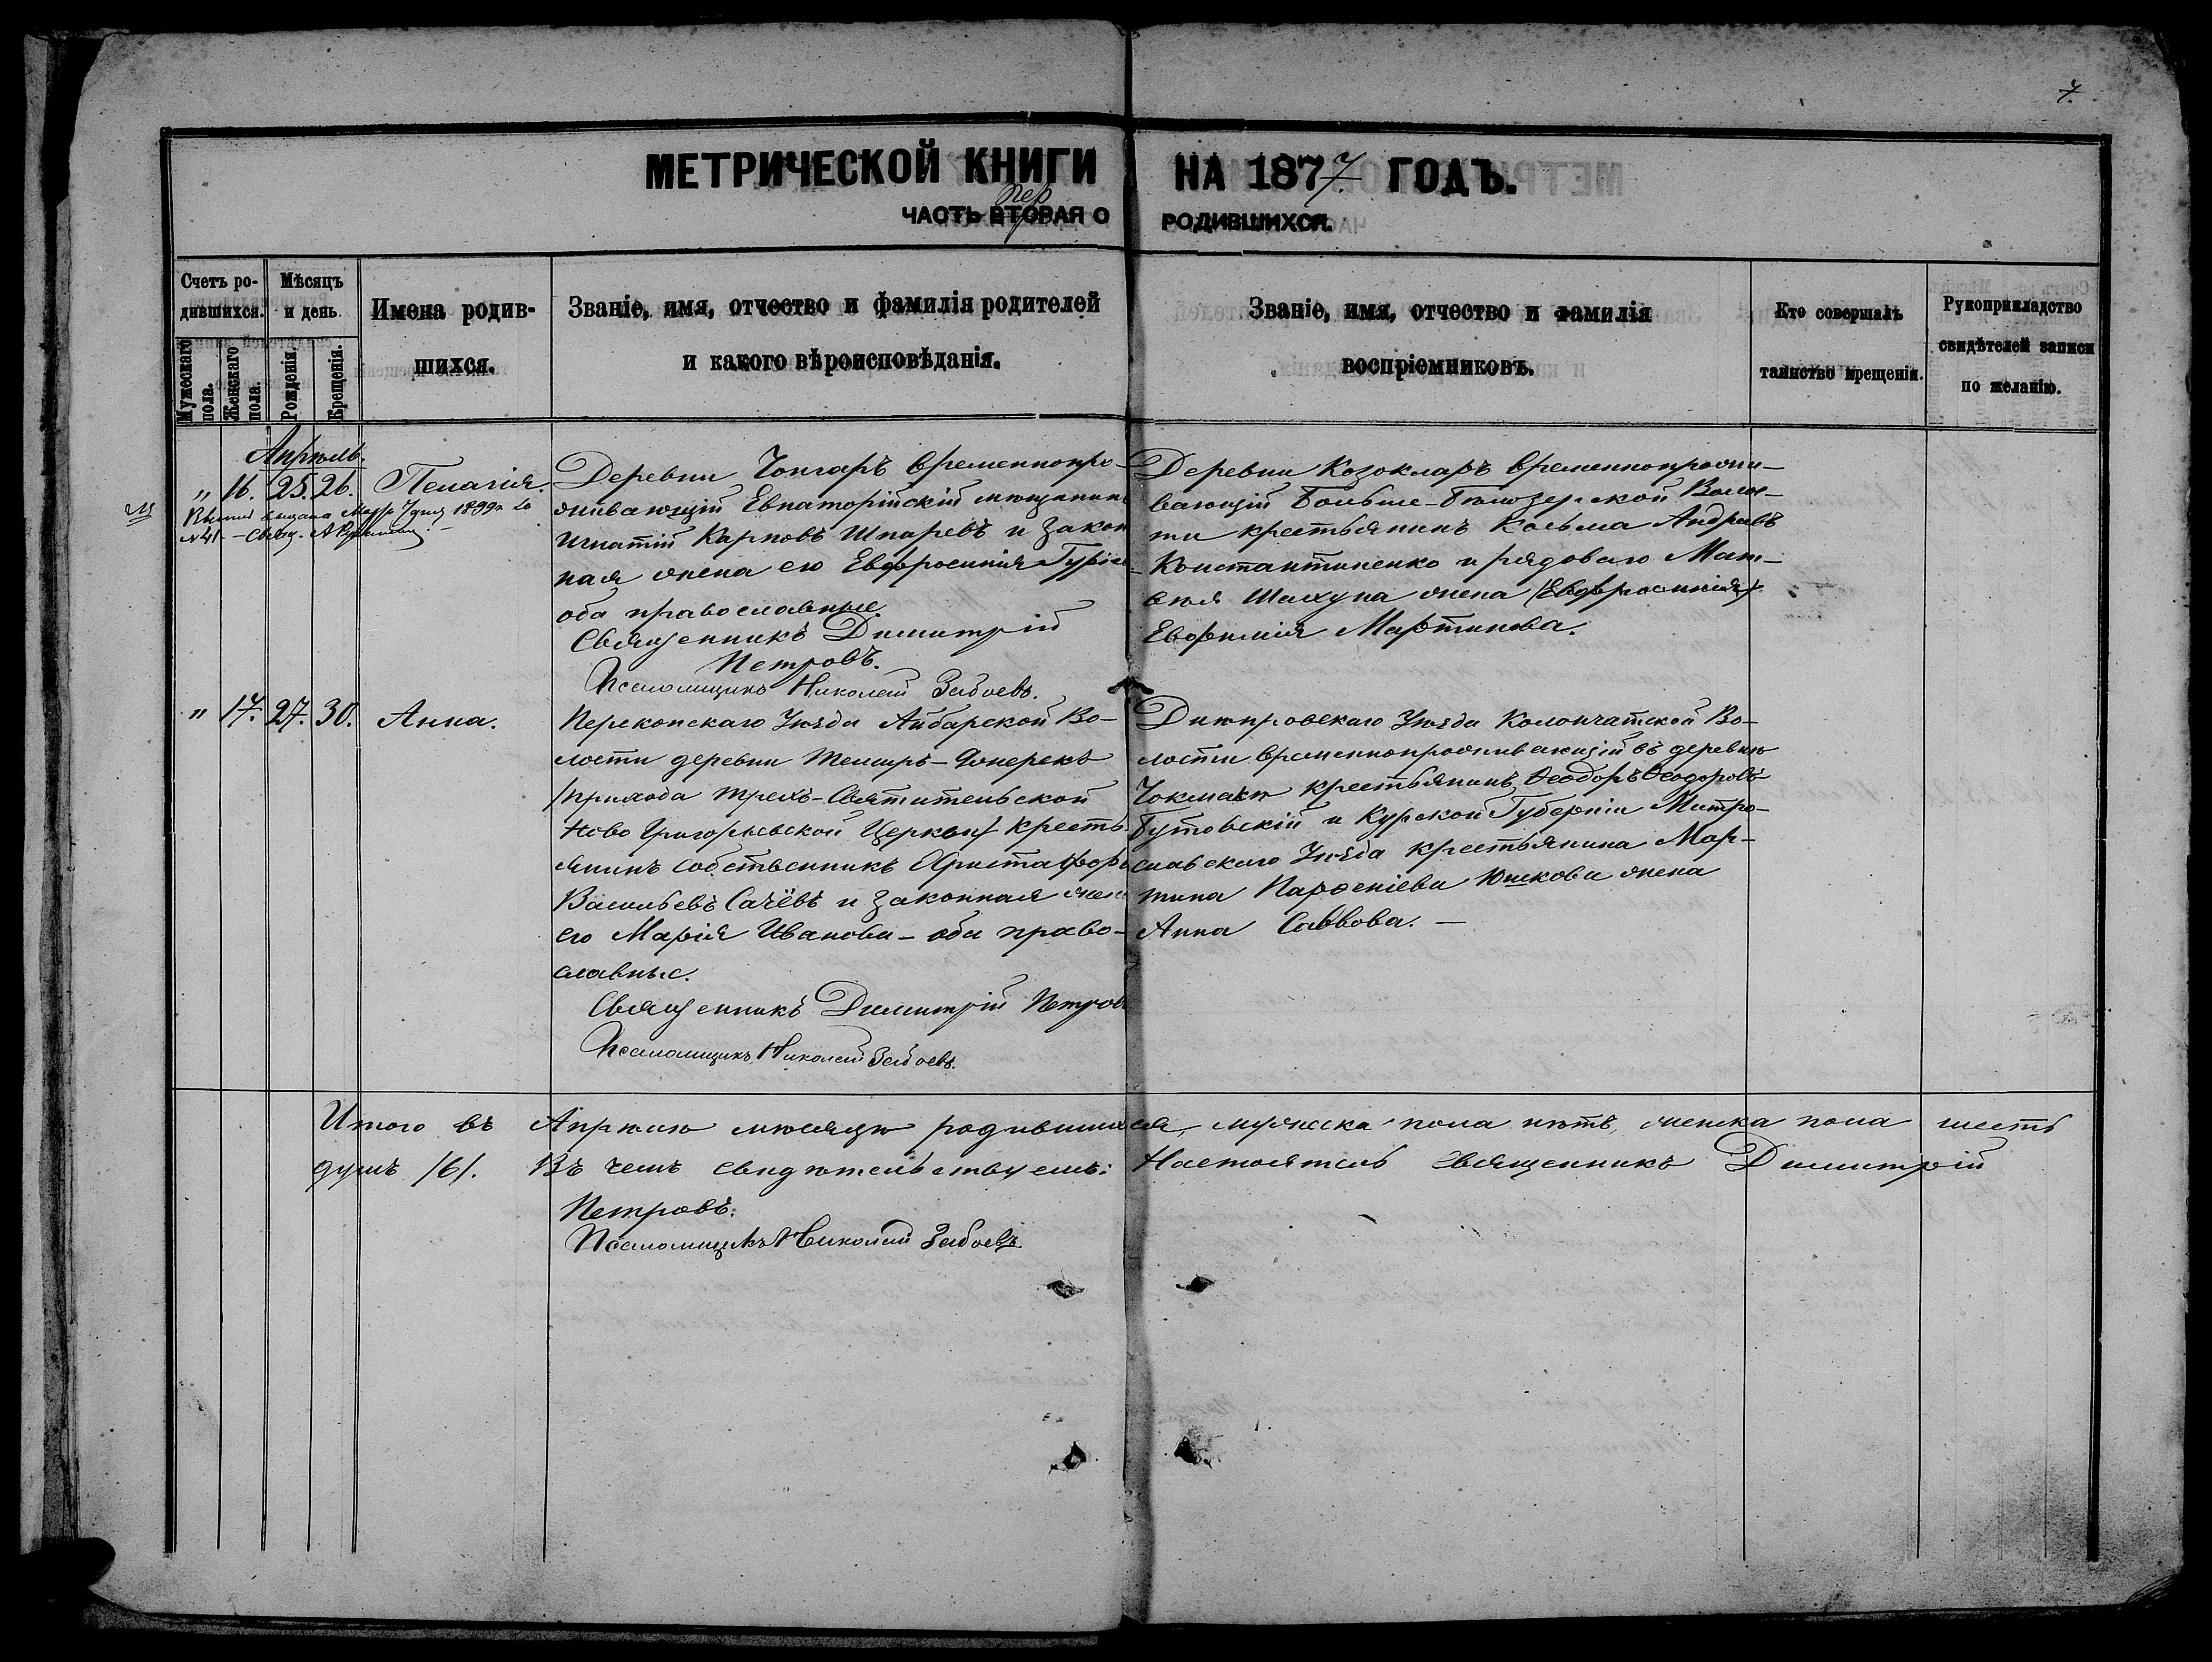 7.
МЕТРИЧЕСКОЙ КНИГИ НА 1877. ГОДЪ.
пер
ЧАСТЬ ВТОРАЯ О РОДИВШИХСЯ.
Счетъ ро-
дившихся.
Мужескаго пола.
Женскаго пола.
Мѣсяцъ
и день.
Рожденія.
Крещенія.
Имена родив-
шихся.
Званіе, имя, отчество и фамилія родителей
и какого вѣроисповѣданія.
Званіе, имя, отчество и фамилія
воспріемниковъ.
Кто совершалъ
таинство крещенія.
Рукоприкладство
свидѣтелей записи
по желанію.
Апрѣль.
" 16. 25. 26. Пелагія.
выдана 1899 г. за
№ 41 –
Деревни Чонгаръ временнопро-
живающій Евпаторійскій мѣщанинъ
Игнатій Карповъ Шпаревъ и закон
ная жена его Евфросинія
оба православные.
Священникъ Димитрій
Петровъ.
Псаломщикъ Николай Забоевъ.
Деревни Козокларъ временнопрожи-
вающій Больше-Бѣлозерской Волос-
ти крестьянинъ Косьма Андреевъ
Константиненко и рядоваго Мат-
вѣя Шалуна жена (Евфросинія)
Евфимія Мартинова.
" 17. 27. 30. Анна.
Перекопскаго Уѣзда Айбарской Во-
лости деревни Темиръ-
/прихода Трехъ-Святительской
Ново Григорьевской Церкви/ кресть
янинъ собственникъ Христафоръ
Васильевъ Сачёвъ и законная жена
его Марія Иванова – оба право-
славные.
Священникъ Димитрій Петровъ
Псаломщикъ Николай Забоевъ.
Днѣпровскаго Уѣзда Колончатской Во-
лости временнопроживающій въ деревнѣ
крестьянинъ Ѳеодоръ Ѳеодоровъ
Бутовскій и Курской Губерніи Митро-
славскаго Уѣзда крестьянина Мар-
тина Парѳеніева Юшкова жена
Анна Саввова. –
Итого въ Апрѣлѣ мѣсяцѣ родившихся, мужеска пола нѣтъ, женска пола шесть
душъ /6/. Въ чемъ свидѣтельствуемъ: Настоятель священникъ Димитрій
Петровъ.
Псаломщикъ Николай Забоевъ